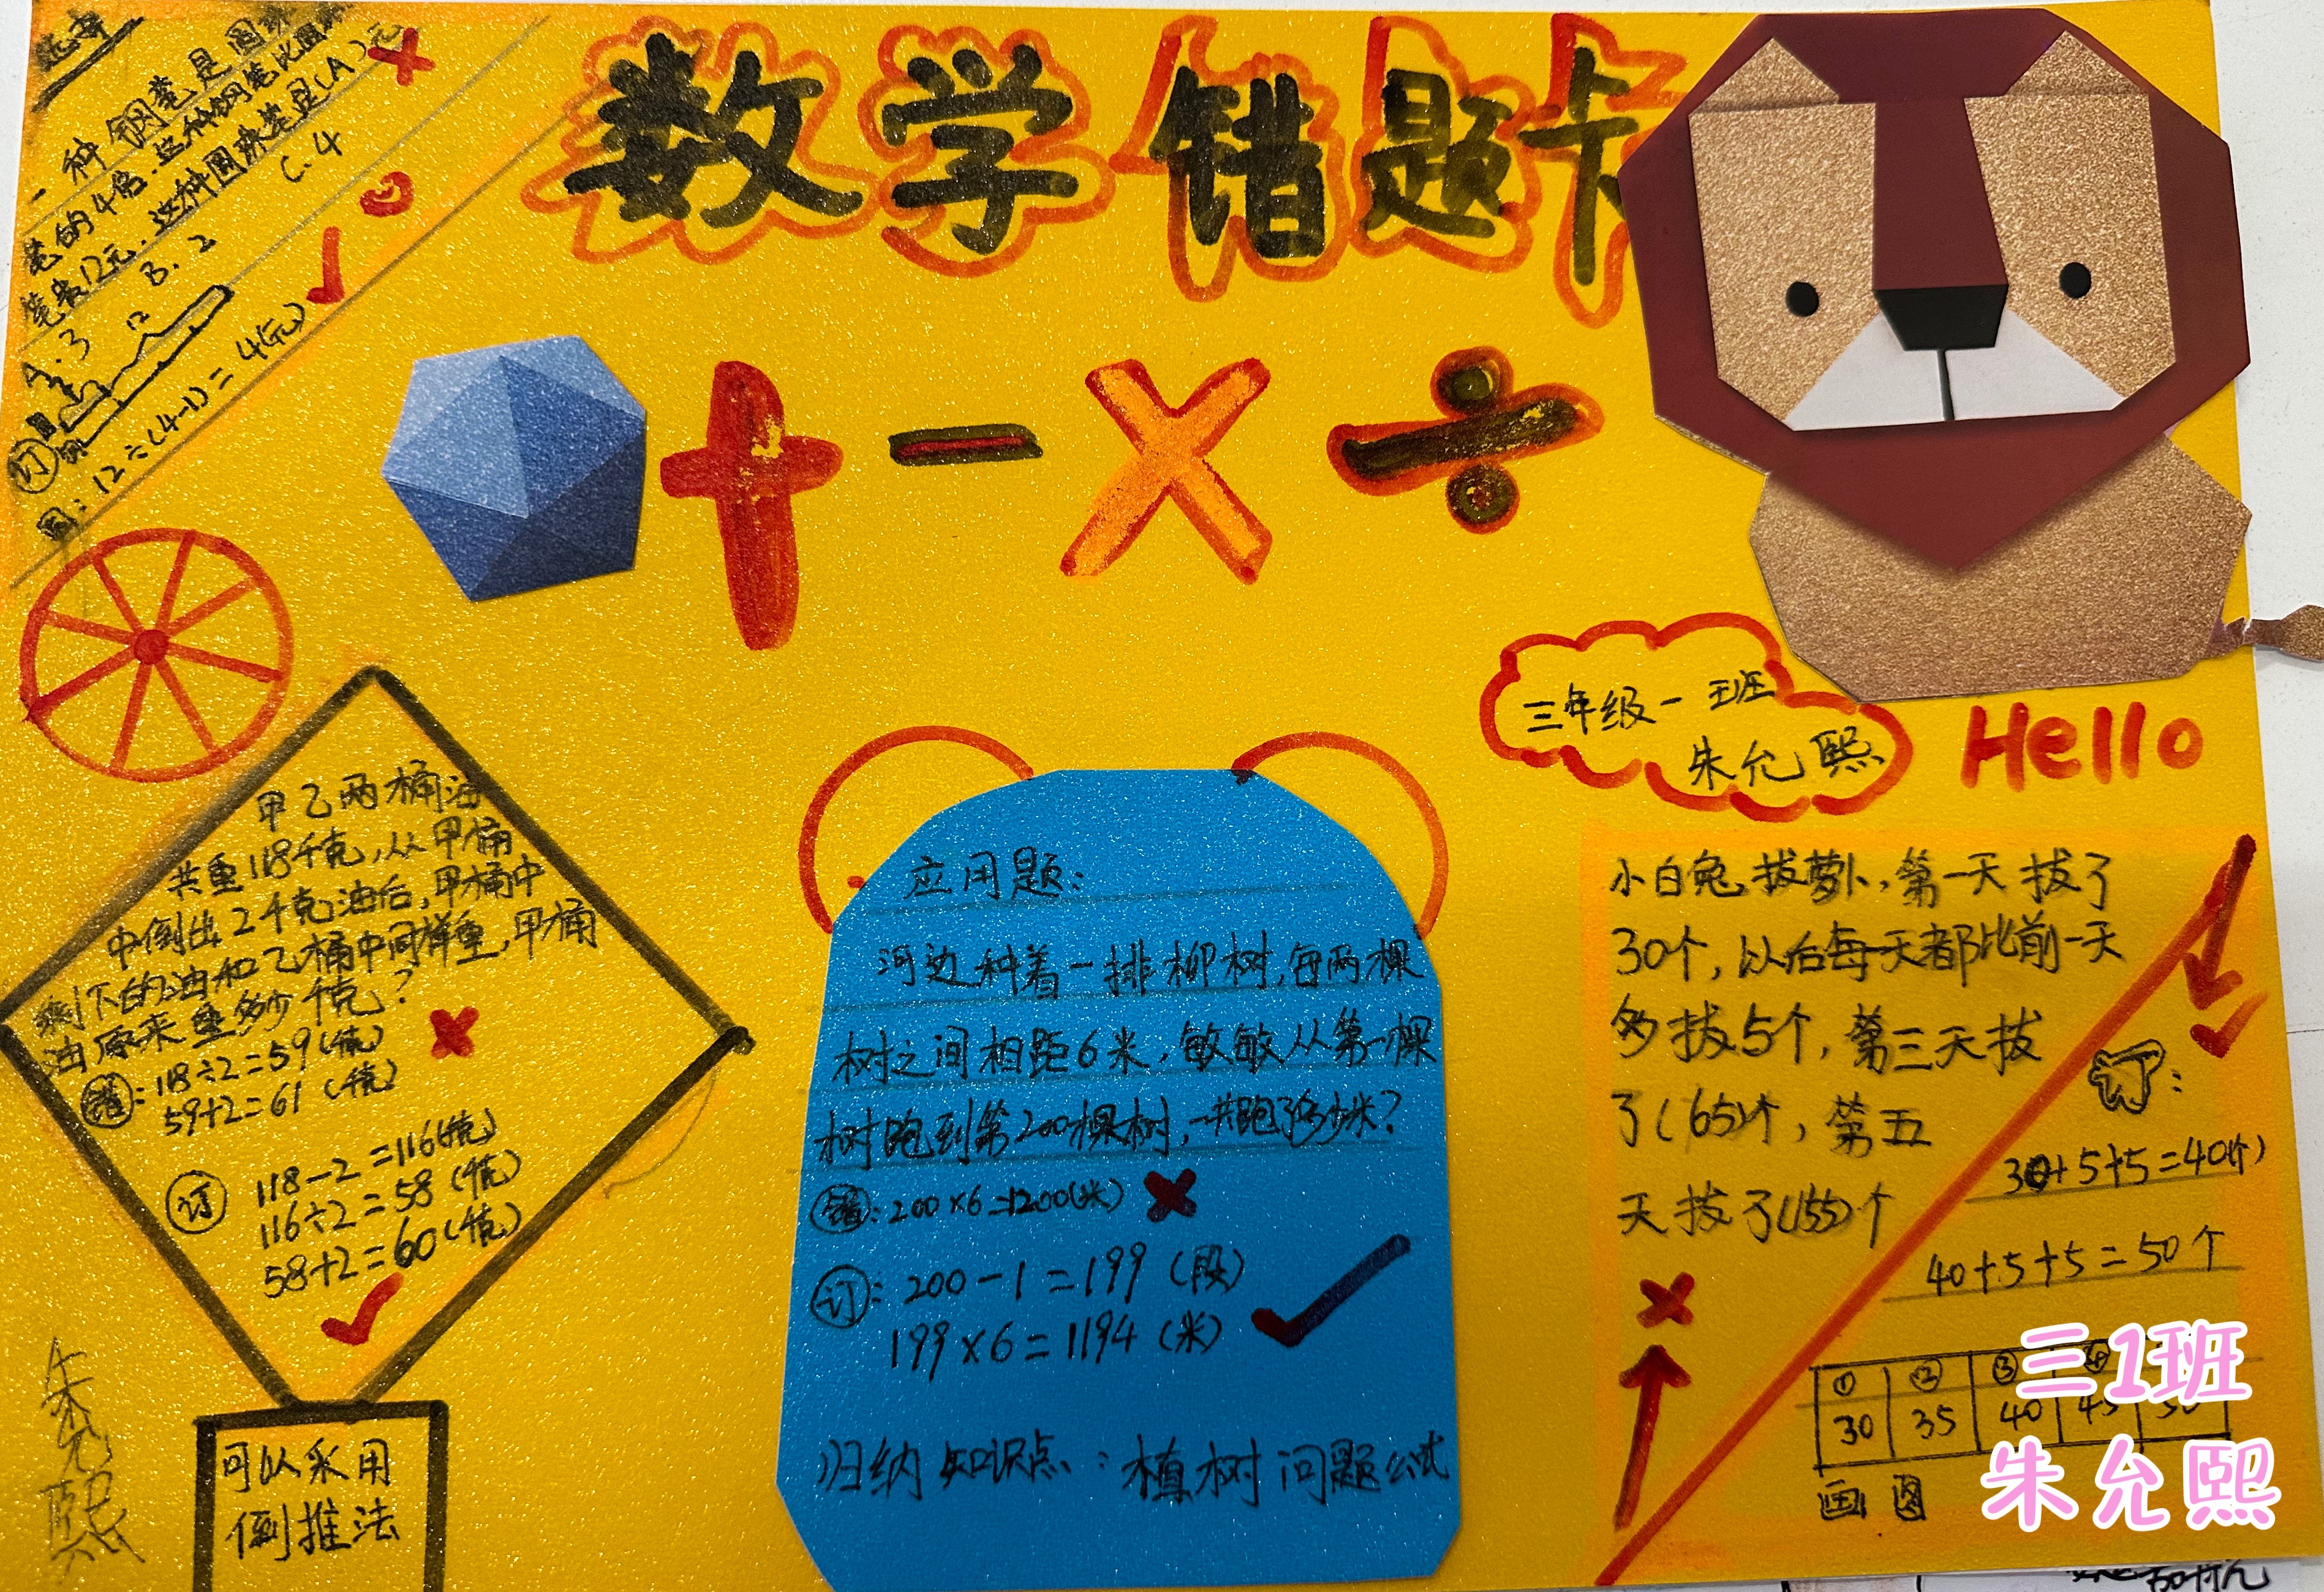 数学错题卡
选择
一种钢笔是圆珠
笔的4倍.这种钢笔比圆珠
笔贵12元.这种圆珠笔是(A)元
A.3 B.2 C.4
12
订
钢
圆:12÷(4-1)=4(元)
+ - × ÷
三年级一班
朱允熙
Hello
甲乙两桶油
共重118千克,从甲桶
中倒出2千克油后,甲桶中
剩下的油和乙桶中同样重,甲桶
油原来重多少千克?
错:118÷2=59(千克)
59+2=61(千克)
订 118-2=116(千克)
116÷2=58(千克)
58+2=60(千克)
可以采用
倒推法
朱允熙
应用题:
河边种着一排柳树,每两棵
树之间相距6米,敏敏从第一棵
树跑到第200棵树,一共跑了多少米?
错:200×6=1200(米)
订:200-1=199(段)
199×6=1194(米)
归纳知识点:植树问题公式
小白兔拔萝卜,第一天拔了
30个,以后每天都比前一天
多拔5个,第三天拔
了(65)个,第五
天拔了(155)个
订:
30+5+5=40(个)
40+5+5=50个
① ② ③ ④
30 35 40 45 50
画图
三1班
朱允熙